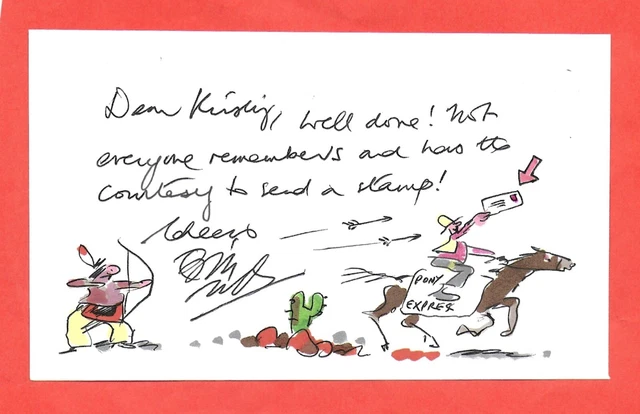 Dear Kirsty, well done! Not
everyone remembers and has the
courtesy to send a stamp!
Cheers
PONY
EXPRES